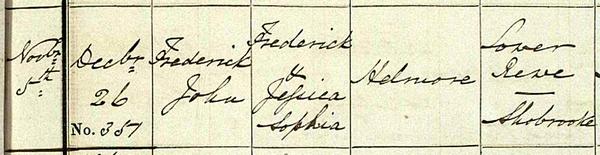 Novbr
5th
Decbr
26
No. 357
Frederick
John
Frederick
&
Jessica
Sophia
Helmore
Lower
Rewe
Shobrooke